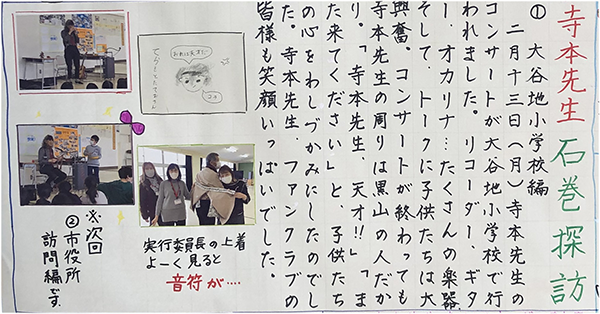 寺本先生 石巻探訪
① 大谷地小学校編
二月十三日(月)寺本先生の
コンサートが大谷地小学校で行
われました。リコーダー、ギタ
ー、オカリナ…たくさんの楽器、
そして、トークに子供たちは大
興奮。コンサートが終わっても
寺本先生の周りは黒山の人だか
り。「寺本先生、天才!!」「ま
た来てください」と、子供たち
の心をわしづかみにしたのでし
た。寺本先生、ファンクラブの
皆様も笑顔いっぱいでした。
おれは天才だ
実行委員長の上着
よーく見ると
音符が‥‥
※次回
②市役所
訪問編です。